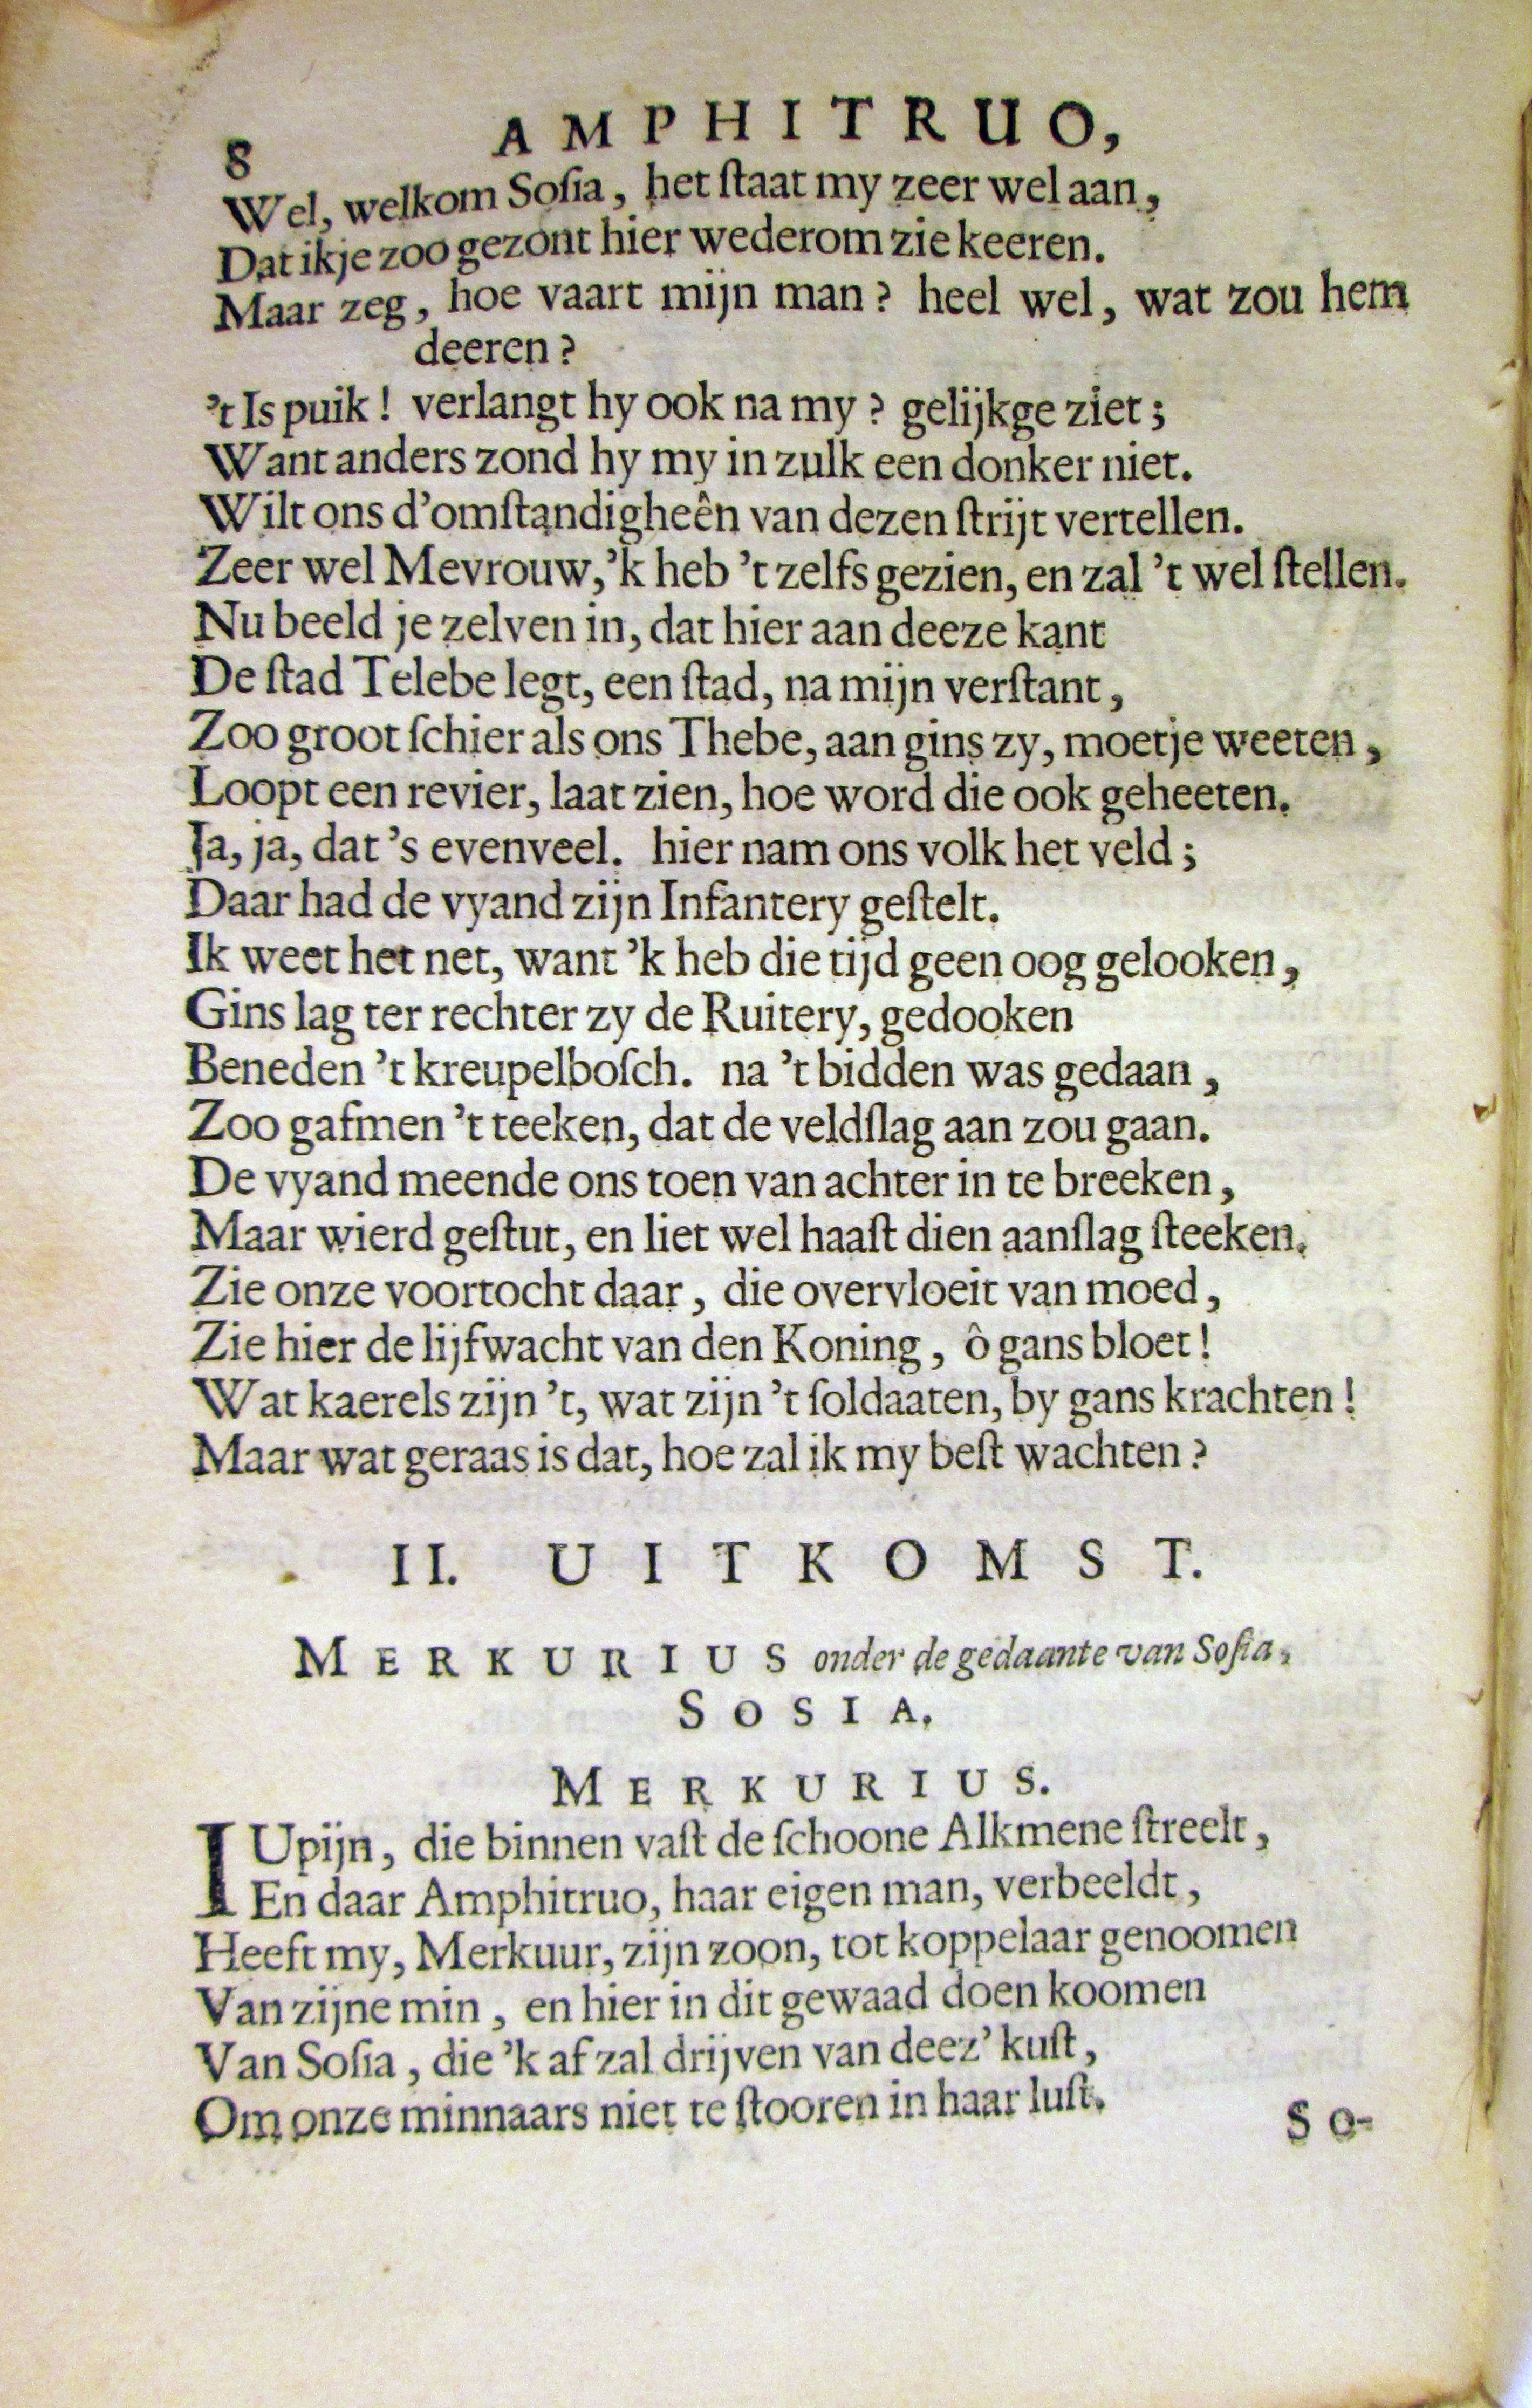 8 AMPHITRUO,
Wel, welkom Soſia, het ſtaat my zeer wel aan,
Dat ikje zoo gezont hier wederom zie keeren.
Maar zeg, hoe vaart mijn man? heel wel, wat zou hem
deeren?
't Is puik! verlangt hy ook na my? gelijkge ziet;
Want anders zond hy my in zulk een donker niet.
Wilt ons d'omſtandigheên van dezen ſtrijt vertellen.
Zeer wel Mevrouw, 'k heb 't zelfs gezien, en zal 't wel ſtellen.
Nu beeld je zelven in, dat hier aan deeze kant
De ſtad Telebe legt, een ſtad, na mijn verſtant,
Zoo groot ſchier als ons Thebe, aan gins zy, moetje weeten,
Loopt een revier, laat zien, hoe word die ook geheeten.
Ja, ja, dat 's evenveel. hier nam ons volk het veld;
Daar had de vyand zijn Infantery geſtelt.
Ik weet het net, want 'k heb die tijd geen oog gelooken,
Gins lag ter rechter zy de Ruitery, gedooken
Beneden 't kreupelboſch. na 't bidden was gedaan,
Zoo gafmen 't teeken, dat de veldſlag aan zou gaan.
De vyand meende ons toen van achter in te breeken,
Maar wierd geſtut, en liet wel haaſt dien aanſlag ſteeken.
Zie onze voortocht daar, die overvloeit van moed,
Zie hier de lijfwacht van den Koning, ô gans bloet!
Wat kaerels zijn 't, wat zijn 't ſoldaaten, by gans krachten!
Maar wat geraas is dat, hoe zal ik my beſt wachten?
II. UITKOMST.
MERKURIUS onder de gedaante van Soſia,
SOSIA.
MERKURIUS.
IUpijn, die binnen vaſt de ſchoone Alkmene ſtreelt,
En daar Amphitruo, haar eigen man, verbeeldt,
Heeft my, Merkuur, zijn zoon, tot koppelaar genoomen
Van zijne min, en hier in dit gewaad doen koomen
Van Soſia, die 'k af zal drijven van deez' kuſt,
Om onze minnaars niet te ſtooren in haar luſt.
SO-